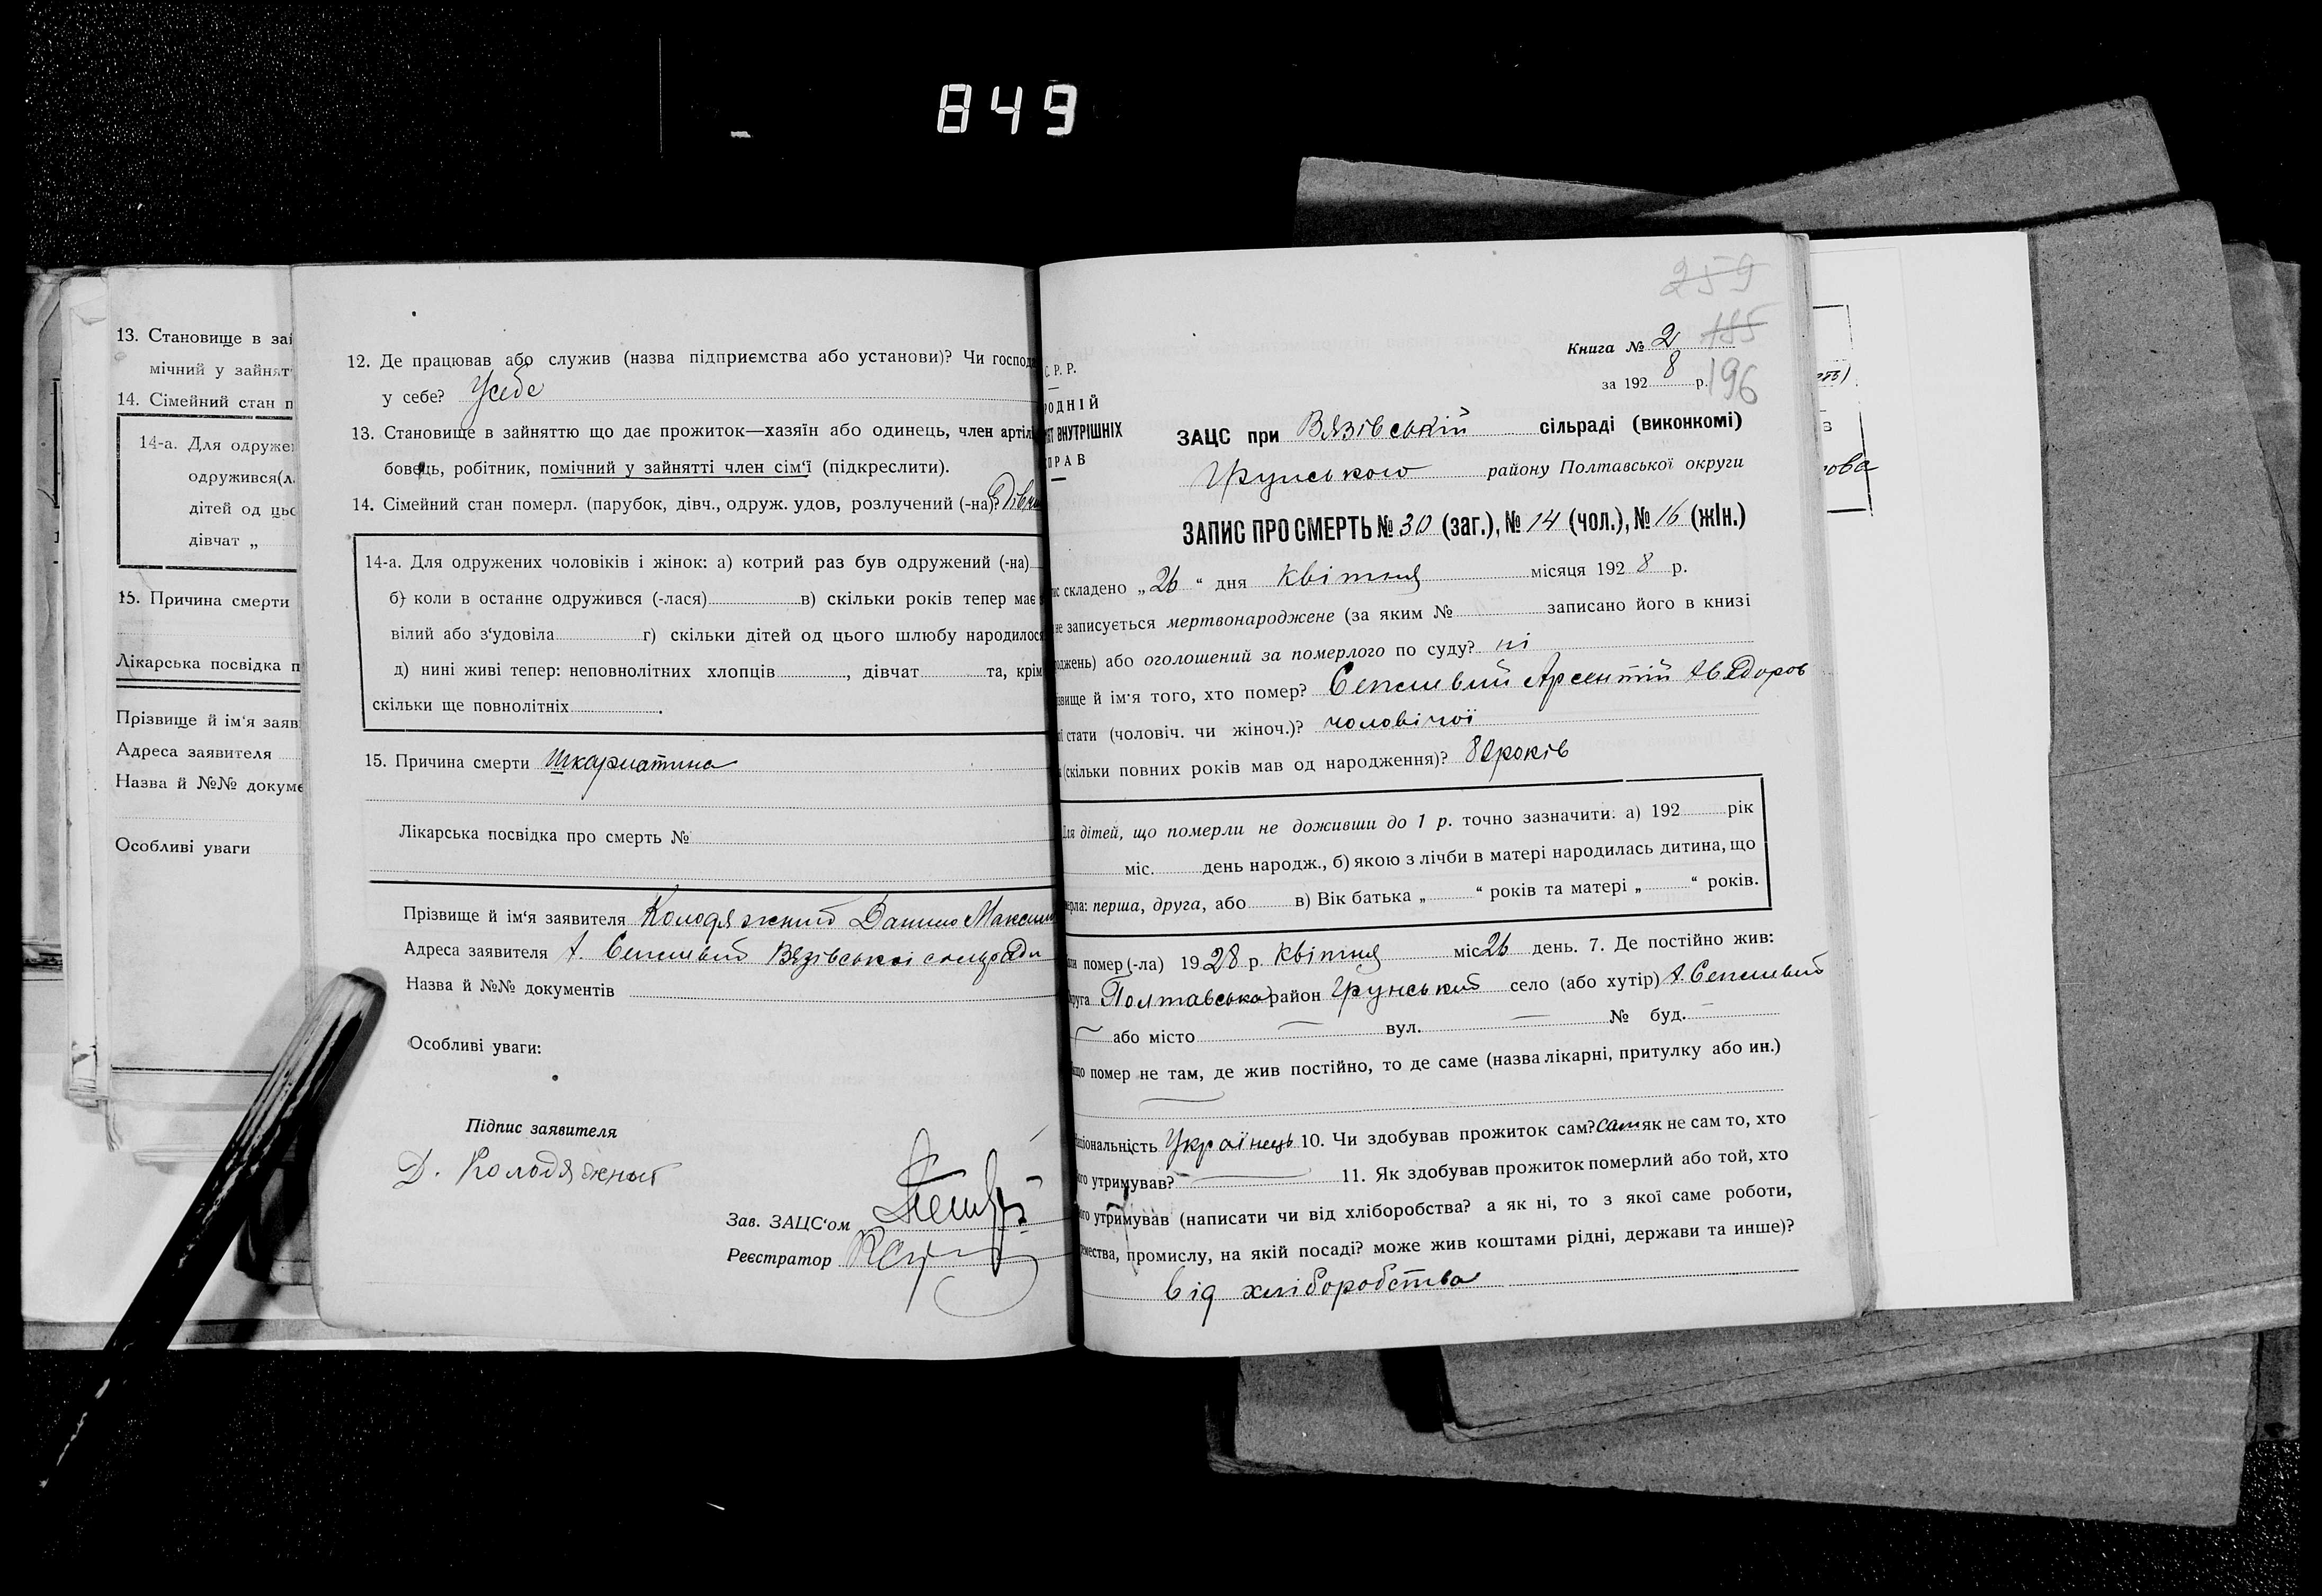 849
13. Становище в зай
мічний у зайнят
14. Сімейний стан п
14-а. Для одружен
одружився(л
дітей од цьо
дівчат „
15. Причина смерти
Лікарська посвідка п
Прізвище й ім'я заяв
Адреса заявителя
Назва й №№ докуме
Особливі уваги
12. Де працював або служив (назва підприємства або установи)? Чи господа
у себе? Усебе
13. Становище в зайняттю що дає прожиток—хазяїн або одинець, член артіл
бовець, робітник, помічний у зайнятті член сім'ї (підкреслити).
14. Сімейний стан померл. (парубок, дівч., одруж. удов, розлучений (-на)?
14-а. Для одружених чоловіків і жінок: а) котрий раз був одружений (-на)
б) коли в останнє одружився (-лася) в) скільки років тепер має
вілий або з'удовіла г) скільки дітей од цього шлюбу народилося
д) нині живі тепер: неповнолітних хлопців , дівчат та, крім
скільки ще повнолітніх .
15. Причина смерти Шкарлатина
Лікарська посвідка про смерть №
Прізвище й ім'я заявителя Колодяжний Данило Максим
Адреса заявителя х. Вязівської сільради
Назва й №№ документів
Особливі уваги:
Підпис заявителя
Д. Колодяжный
Зав. ЗАЦС'ом
Реєстратор
259
Книга № 2 195
за 192 8 р. 196
С. Р. Р.
РОДНІЙ
АТ ВНУТРІШНІХ
ПРАВ
ЗАЦС при Вязівській сільраді (виконкомі)
Грунського району Полтавської округи
ЗАПИС ПРО СМЕРТЬ № 30 (заг.), № 14 (чол.), № 16 (жін.)
ис складено „26“ дня квітня місяця 192 8 р.
не записується мертвонароджене (за яким № записано його в книзі
оджень) або оголошений за померлого по суду? ні
звище й ім'я того, хто помер? Арсентій
ії стати (чоловіч. чи жіноч.)? чоловічої
(скільки повних років мав од народження)? років
Для дітей, що померли не доживши до 1 р. точно зазначити: а) 192 рік
міс. день народж., б) якою з лічби в матері народилась дитина, що
мерла: перша, друга, або в) Вік батька „ “ років та матері „ “ років.
ли помер (-ла) 1928 р. квітня міс 26 день. 7. Де постійно жив:
округа Полтавська район Грунський село (або хутір) х.
або місто вул. № буд.
що помер не там, де жив постійно, то де саме (назва лікарні, притулку або ин.)
Національність Українець 10. Чи здобував прожиток сам? Сам як не сам то, хто
го утримував? 11. Як здобував прожиток померлий або той, хто
го утримував (написати чи від хліборобства? а як ні, то з якої саме роботи,
емества, промислу, на якій посаді? може жив коштами рідні, держави та инше)?
від хліборобства